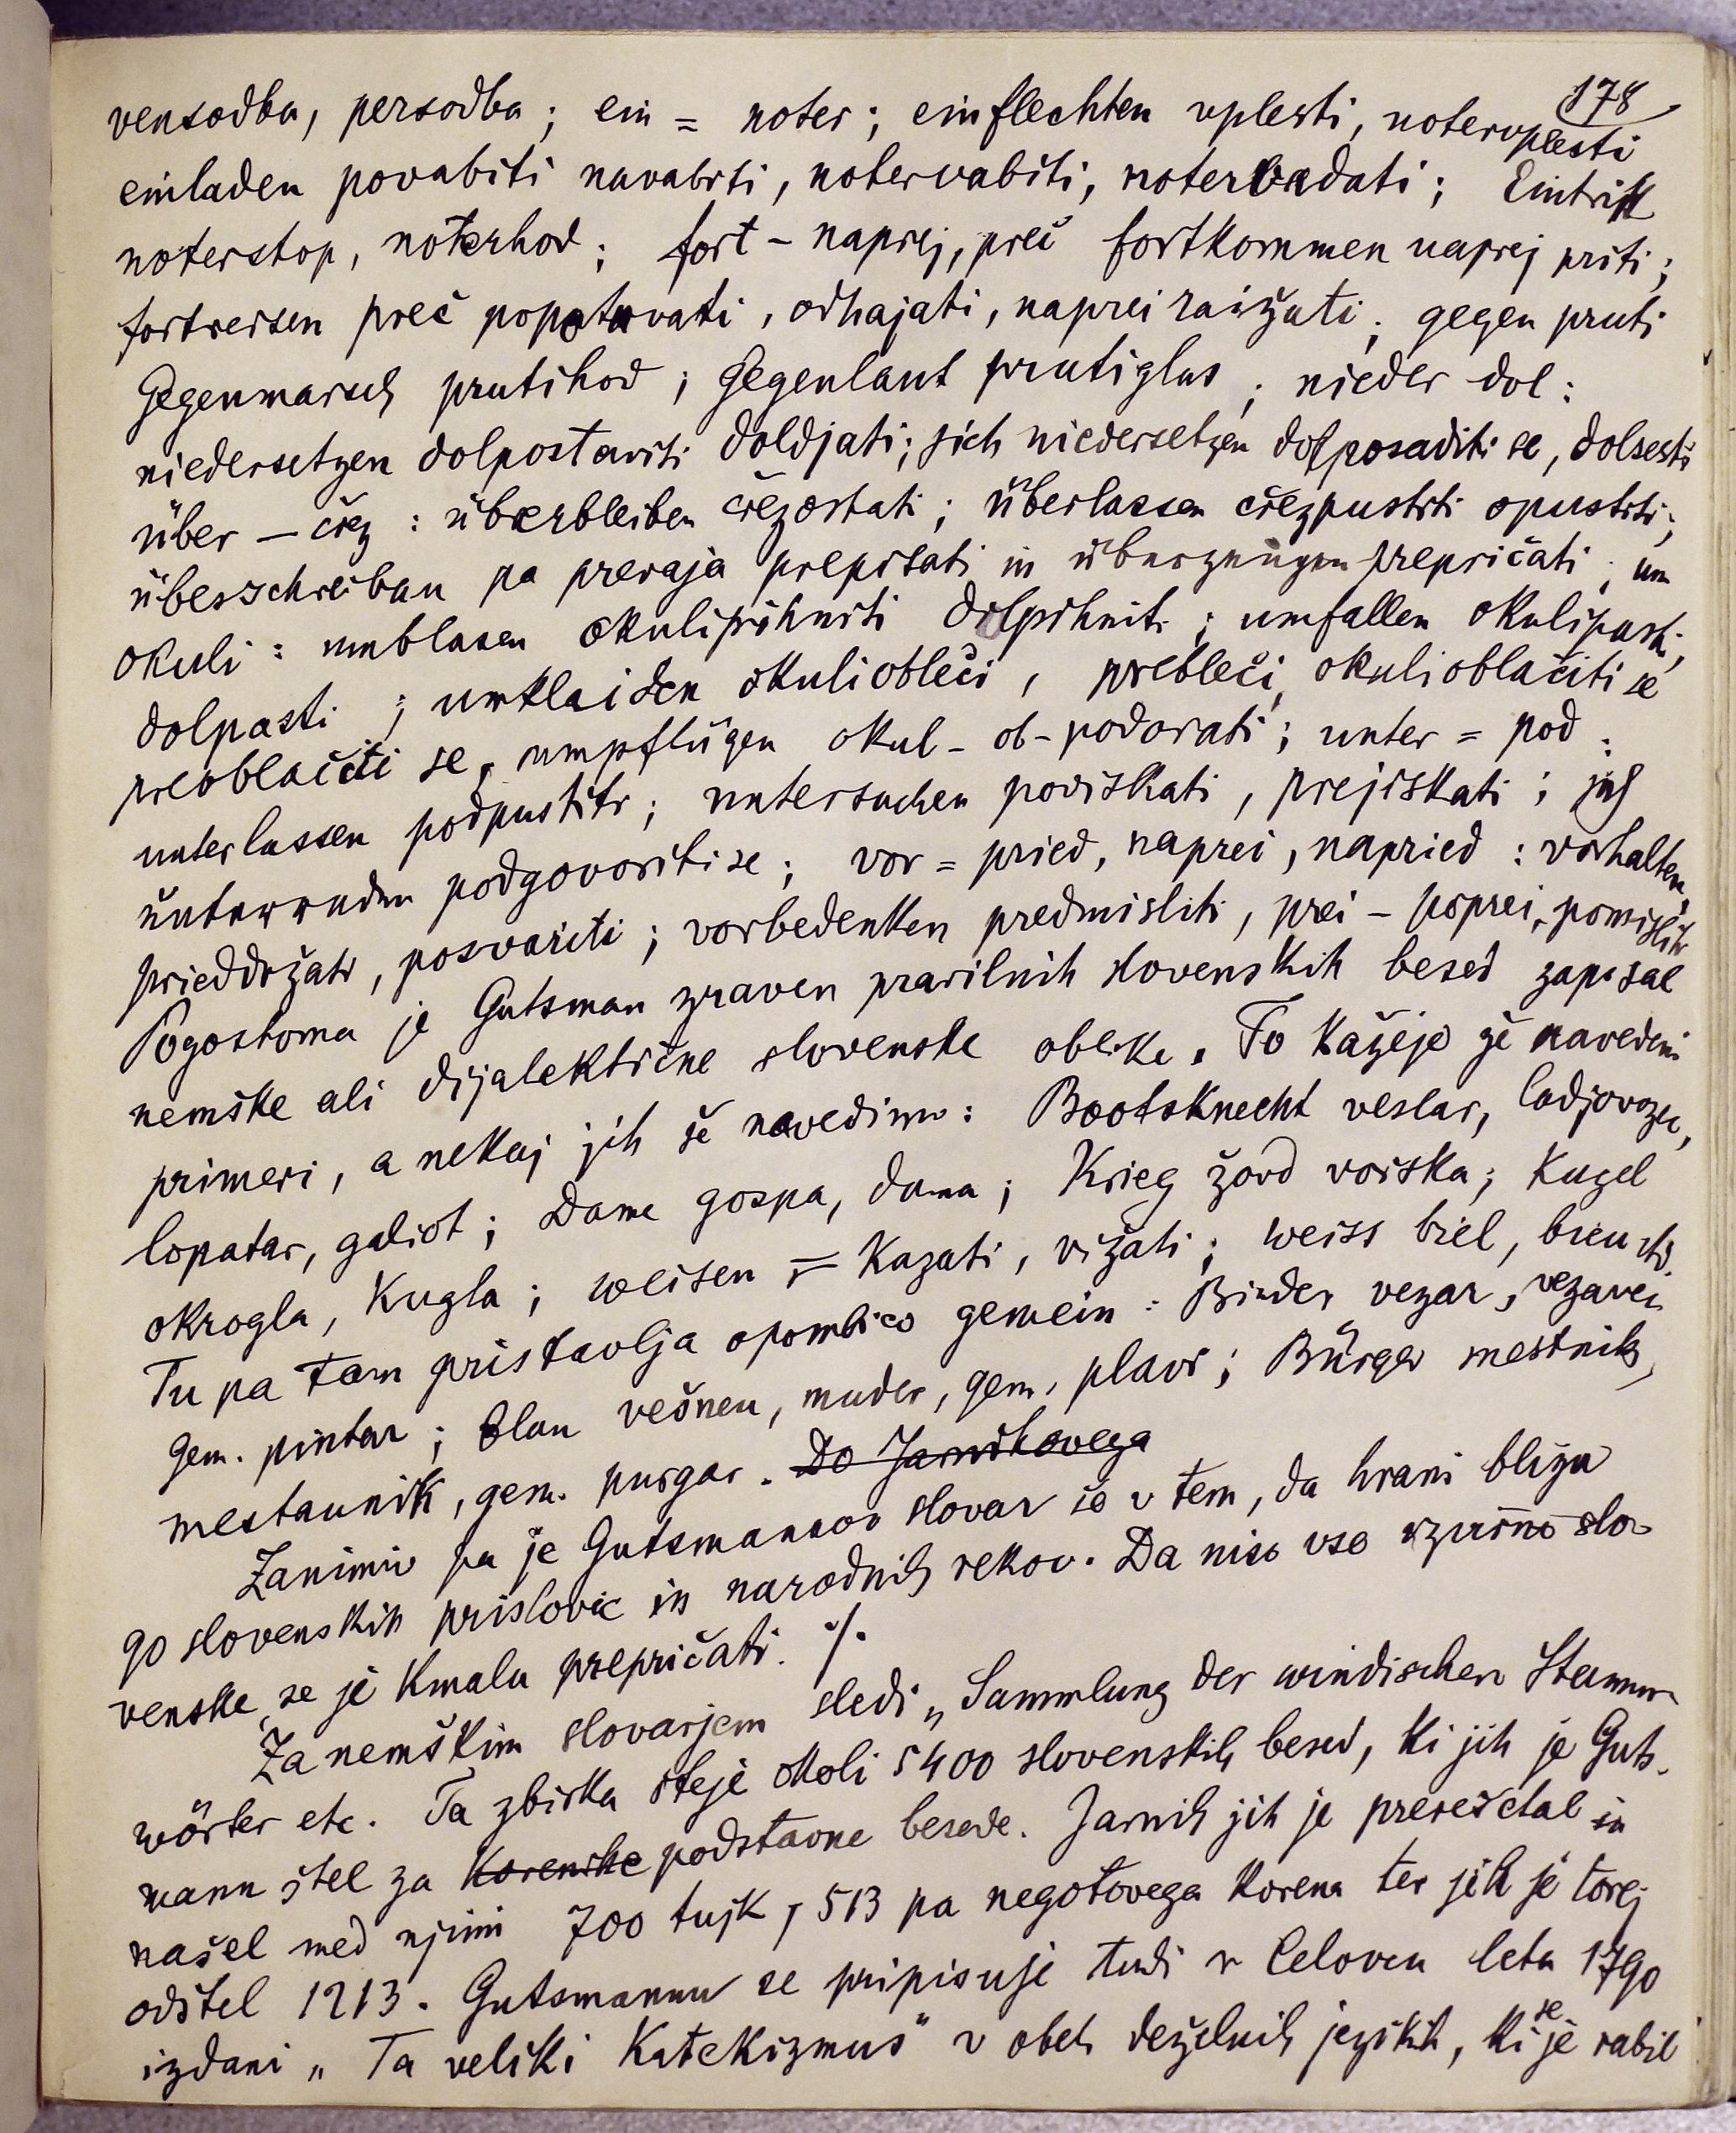 178
vensodba, persodba; ein = noter; einflechten vplesti, notervplesti
einladen povabiti navabiti, notervabiti, Eintritt
noterstop, noterhod; fort – naprej, preč fortkommen naprej priti;
fortreisen preč popotuvati, odhajati, naprei raižati; gegen pruti
Gegenmarsch prutihod; Gegenlaut prutiglas; nieder dol:
niedersetzen dolpostaviti doldjati; sich niedersetzen dolposaditi se, dolsesti
über – črez: überbleiben črezostati; überlassen črezpustiti opustiti;
überschreiben pa prevaja prepisati in überzeugen prepričati; um
okuli: umblasen okulipihniti dolpihniti; umfallen okulipasti,
dolpasti; umkleiden okuliobleči, prebleči, okulioblačiti se
preoblačiti se, umpflügen okul- ob- podorati; unter = pod:
unterlassen podpustiti; untersuchen poviskati, prejiskati;
podgovoriti se; vor = pried, naprei, napried: vorhalten,
prieddržati, posvariti; vorbedenken predmisliti, prei – poprei, pomisliti
Pogostoma je Gutsman zraven pravilnih slovenskih besed zapisal
nemške ali dijalektične slovenske oblike. To kažejo že navedeni
primeri, a nekaj jih še navedimo: Bootsknecht veslar, ladjovozec,
lopatar, galiot; Dame gospa, dama; Krieg žovd voiska; Kugel
okrogla, Kugla; weisen = kazati, vižati; weiss biel,
Tu pa tam pristavlja opombico gemein: Binder vezar, vezavec
gem. pintar; blau vešnen, muder, gem. plavi; Bürger mestnik,
mestaunik, gem. purgar. Do Jarnikovega
Zanimiv pa je Gutsmannov slovar še v tem, da hrani blizu
90 slovenskih prislovic in narodnih rekov. Da niso vse izvirno slo-
venske, se je kmalu prepričati. ·/.
Za nemškim slovarjem sledi „Sammlung der windischen Stamm-
wörter etc. Ta zbirka šteje okoli 5400 slovenskih besed, ki jih je Guts-
mann štel za korenike podstavne besede. Jarnik jih je prerešetal in
našel med njimi 700 tujk, 513 pa negotovega korena ter jih je torej
odštel 1213. Gutsmannu se pripisuje tudi v Celovcu leta 1790
izdani „Ta veliki Katekizmus" v obeh deželnih jezikih, ki se je rabil